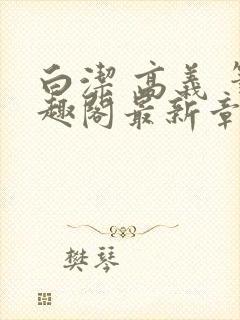 白洁 高义 笔
趣阁最新章
樊琴